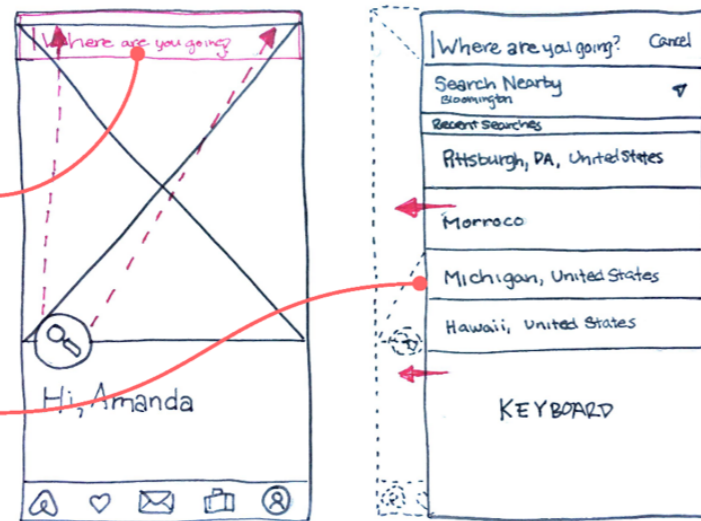 Where are you going?
Hi, Amanda
Where are you going? Cancel
Search Nearby
Bloomington
Recent Searches
Pittsburgh, PA, United States
Morroco
Michigan, United States
Hawaii, United States
KEYBOARD